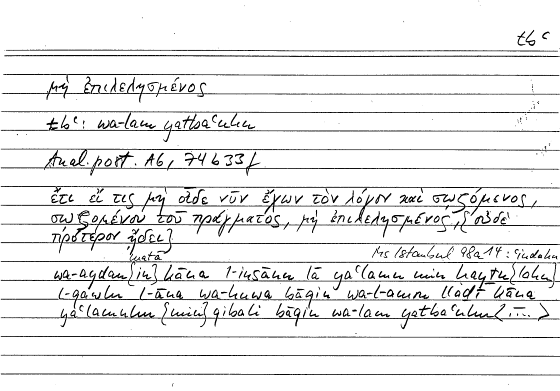 tbʿ
μὴ ἐπιλελησμένος
tbʿ: wa-lam yatbaʿuhu
Anal. post. A6, 74 b 33 f
ἔτι εἴ τις μὴ οἶδε νῦν ἔχων τὸν λόγον καὶ σῳζόμενος,
σῳζομένου τοῦ πράγματος, μὴ ἐπιλελησμένος, {οὐδὲ
πρότερον ᾔδει}
matā
Ms Istanbul 98a14: ʿindahu
wa-ayḍan {in} kāna l-insānu lā yaʿlamu min ḥayṯu {lahu}
l-qawlu l-āna wa-huwa bāqin wa-l-amru llaḏī kāna
yaʿlamuhu {min} qibali bāqin wa-lam yatbaʿuhu <....>